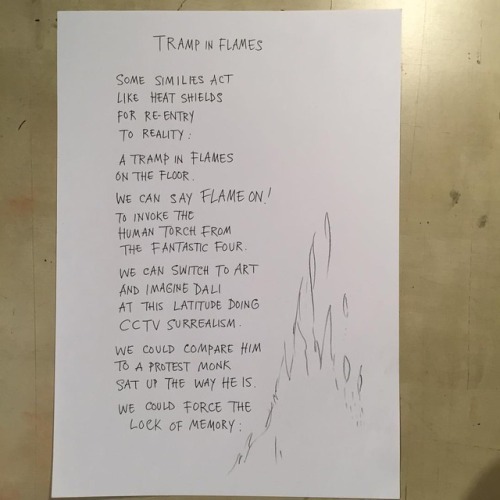 TRAMP IN FLAMES
SOME SIMILIES ACT
LIKE HEAT SHIELDS
FOR RE-ENTRY
TO REALITY:
A TRAMP IN FLAMES
ON THE FLOOR.
WE CAN SAY FLAME ON!
TO INVOKE THE
HUMAN TORCH FROM
THE FANTASTIC FOUR.
WE CAN SWITCH TO ART
AND IMAGINE DALI
AT THIS LATITUDE DOING
CCTV SURREALISM.
WE COULD COMPARE HIM
TO A PROTEST MONK
SAT UP THE WAY HE IS.
WE COULD FORCE THE
LOCK OF MEMORY: